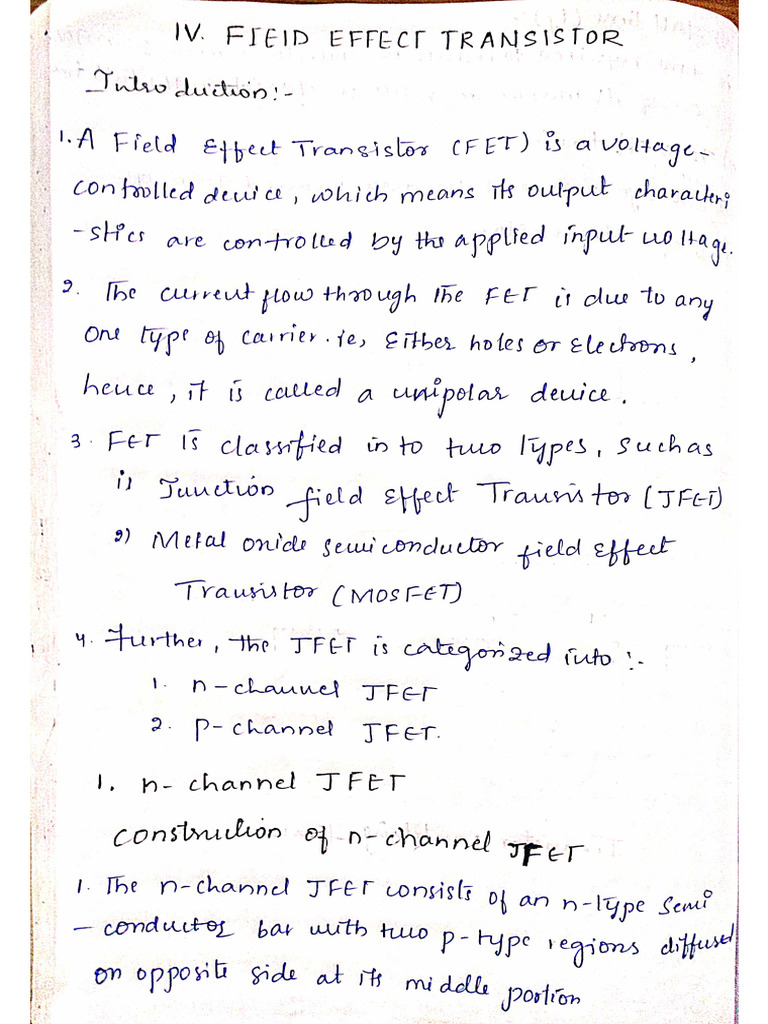 IV. FIEID EFFECT TRANSISTOR
Introduction:-
1. A Field Effect Transistor (FET) is a voltage-
controlled device, which means its output characteri
-stics are controlled by the applied input voltage.
2. The current flow through the FET is due to any
one type of carrier. ie, Either holes or electrons,
hence, it is called a unipolar device.
3. FET is classified in to two types, such as
1) Junction field Effect Transistor (JFET)
2) Metal oxide semiconductor field Effect
Transistor (MOSFET)
4. Further, the JFET is categorized into:-
1. n-channel JFET
2. p-channel JFET.
1. n-channel JFET
construction of n-channel JFET
1. The n-channel JFET consists of an n-type semi
-conductor bar with two p-type regions diffused
on opposite side at its middle portion